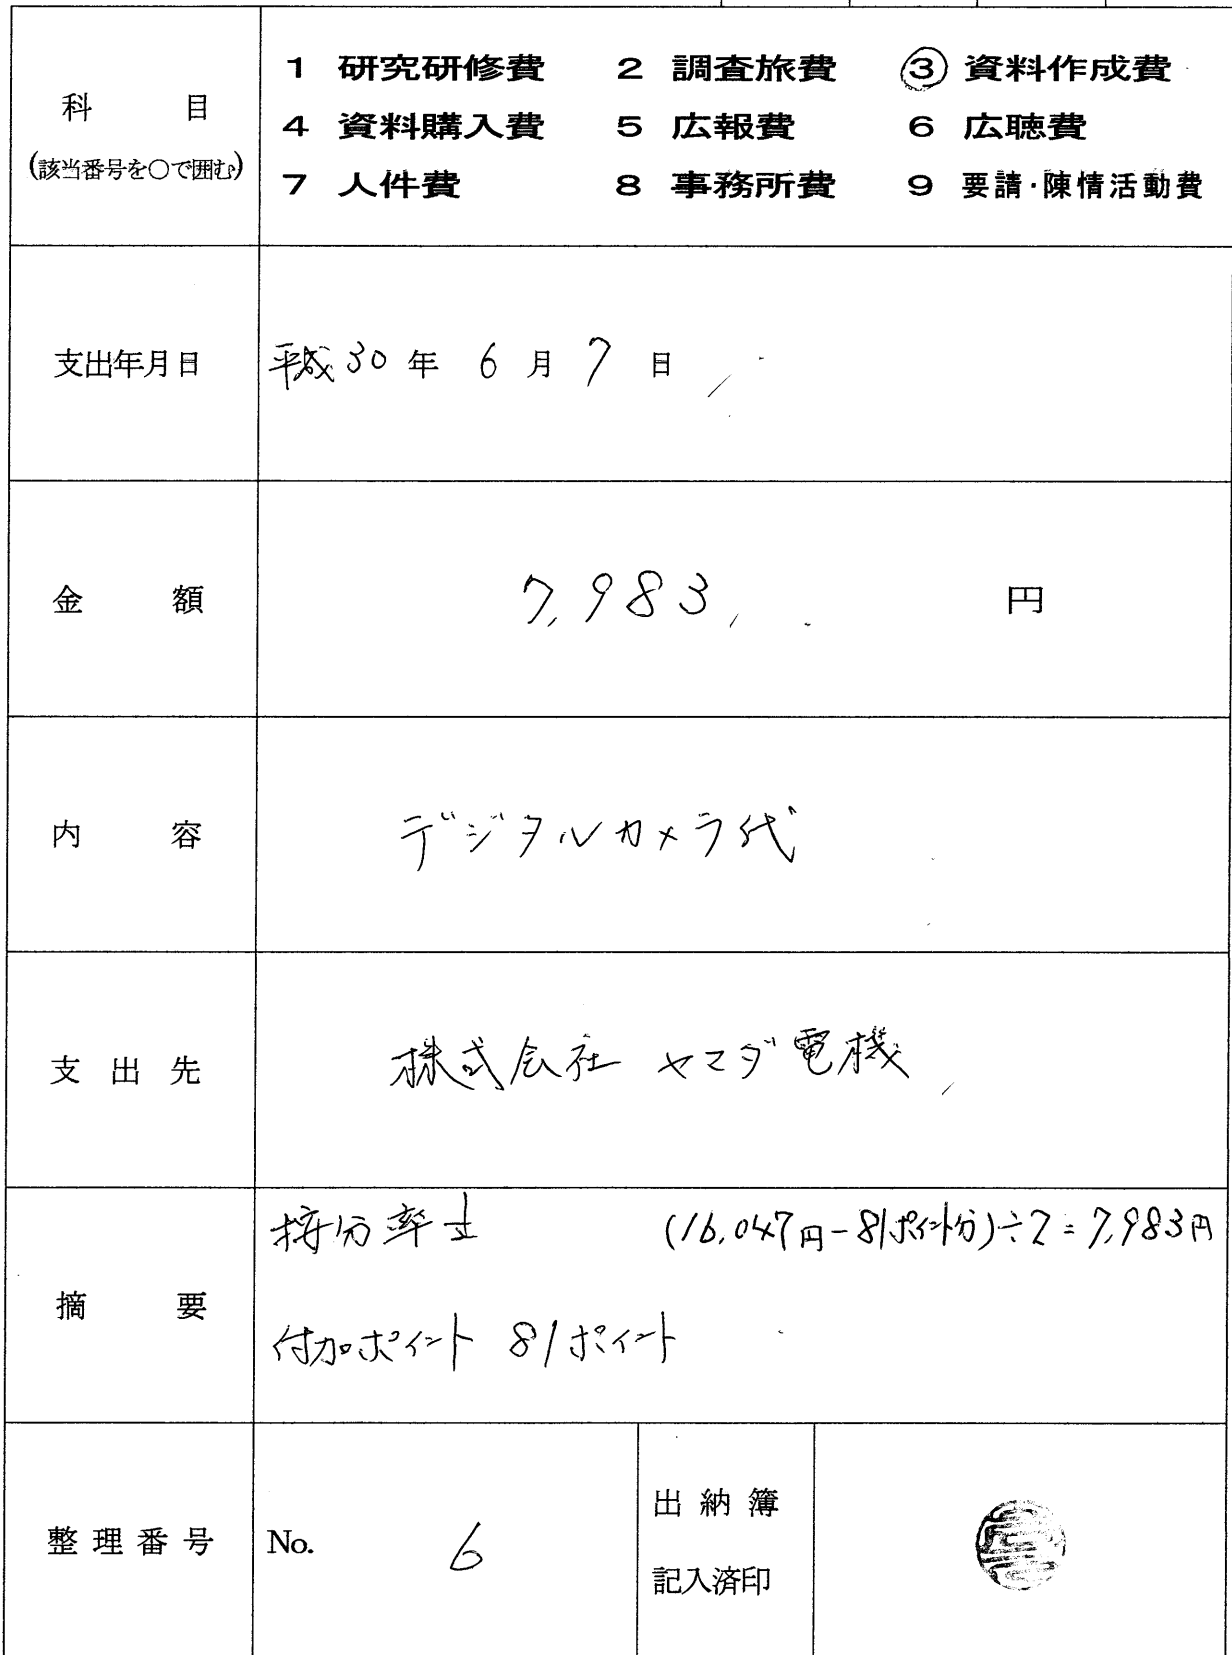 科目
(該当番号を○で囲む)
1 研究研修費 2 調査旅費 ③ 資料作成費
4 資料購入費 5 広報費 6 広聴費
7 人件費 8 事務所費 9 要請・陳情活動費
支出年月日 平成30年 6月 7日
金額 7,983, 円
内容 デジタルカメラ代
支出先 株式会社 ヤマダ電機
摘要
按分率½ (16,047円-81ポイント分)÷2=7,983円
付加ポイント 81ポイント
整理番号 No. 6
出納簿
記入済印